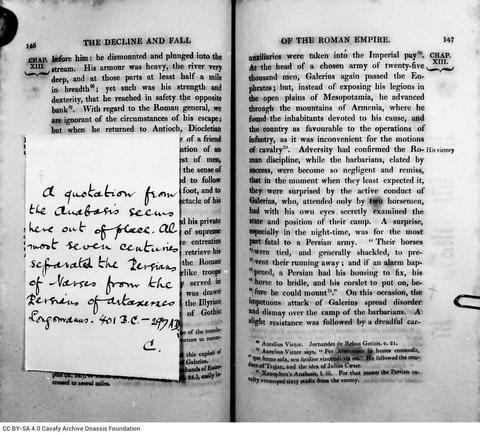 146
THE DECLINE AND FALL
CHAP.
XIII.
before him: he dismounted and plunged into the
stream. His armour was heavy, the river very
deep, and at those parts at least half a mile
in breadth; yet such was his strength and
dexterity, that he reached in safety the opposite
bank. With regard to the Roman general, we
are ignorant of the circumstances of his escape;
but when he returned to Antioch, Diocletian
of a friend
ation of an
st of men,
the sense of
d to follow
foot, and to
ectacle of his
d his private
of supreme
entreaties
retrieve his
the Roman
like troops
y served in
was drawn
the Illyrian
of Gothic
A quotation from
the Anabasis seems
here out of place. Al-
most seven centuries
separated the Persians
of Narses from the
Persians of Artaxerxes
401 B.C. – 297 A.D.
C.
this exploit of
Galerius.
crossed to several miles.
OF THE ROMAN EMPIRE.
147
CHAP.
XIII.
auxiliaries were taken into the Imperial pay.
At the head of a chosen army of twenty-five
thousand men, Galerius again passed the Eu-
phrates; but, instead of exposing his legions in
the open plains of Mesopotamia, he advanced
through the mountains of Armenia, where he
found the inhabitants devoted to his cause, and
the country as favourable to the operations of
infantry, as it was inconvenient for the motions
of cavalry. Adversity had confirmed the Ro-
His victory
man discipline, while the barbarians, elated by
success, were become so negligent and remiss,
that in the moment when they least expected it,
they were surprised by the active conduct of
Galerius, who, attended only by two horsemen,
had with his own eyes secretly examined the
state and position of their camp. A surprise,
especially in the night-time, was for the most
part fatal to a Persian army. "Their horses
"were tied, and generally shackled, to pre-
"vent their running away; and if an alarm hap-
"pened, a Persian had his housing to fix, his
"horse to bridle, and his corslet to put on, be-
"fore he could mount." On this occasion, the
impetuous attack of Galerius spread disorder
and dismay over the camp of the barbarians. A
slight resistance was followed by a dreadful car-
Aurelius Victor. Jornandes de Rebus Geticis. c. 21.
Aurelius Victor says, "Per Armeniam in hostes contendit,
"quæ ferme sola, seu facilior vincendi via est." He followed the con-
duct of Trajan, and the idea of Julius Cæsar.
Xenophon's Anabasis, l. iii. For that reason the Persian ca-
valry encamped sixty stadia from the enemy.
CC BY-SA 4.0 Cavafy Archive Onassis Foundation